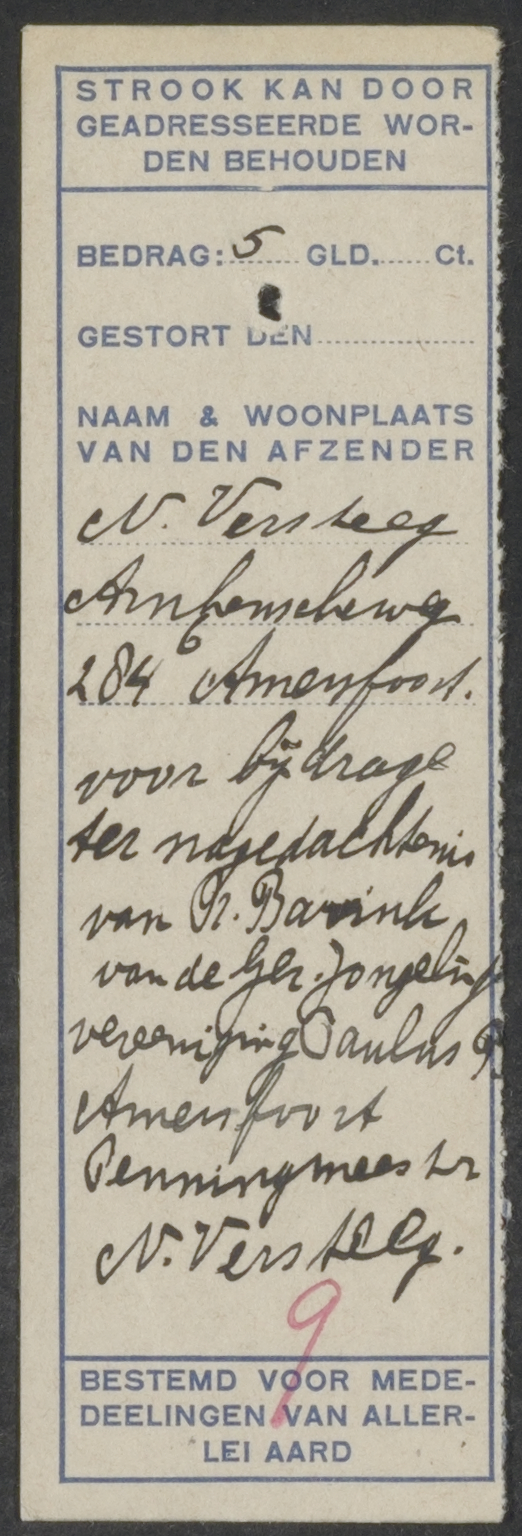 STROOK KAN DOOR
GEADRESSEERDE WOR-
DEN BEHOUDEN
BEDRAG: 5 GLD. Ct.
GESTORT DEN
NAAM & WOONPLAATS
VAN DEN AFZENDER
N. Versteeg
Arnhemscheweg
284 b Amersfoort.
voor bijdrage
ter nagedachtenis
van Dr. Bavink
van de Ger. Jongelings
vereeniging Paulus
Amersfoort
Penningmeester
N. Versteeg.
9
BESTEMD VOOR MEDE-
DEELINGEN VAN ALLER-
LEI AARD